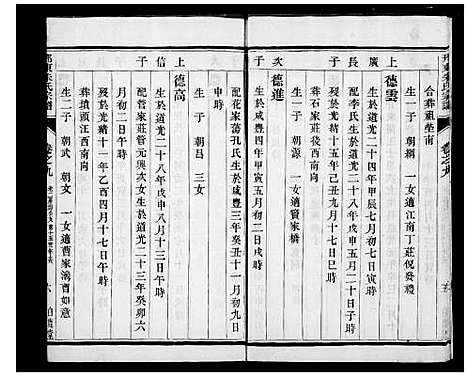 合葬祖塋南
生一子 朝綱 一女適江南丁莊倪發禮
上
德雲
廣
長
子
生於道光二十四年甲辰七月初七日寅時
配李氏生於道光二十六年丙午五月二十日子時
歿於光緒十五年己丑九月十七日巳時
葬石家莊後西南向
生一子 朝源 一女適賀家橋
次
子
德進
生於咸豐四年甲寅五月初二日戌時
配花家蕩孔氏生於咸豐三年癸丑十一月初九日
時
生一子 朝昌 三女
上
信
子
德高
生於道光二十八年戊申八月十三日午時
配管家莊管元興次女生於道光二十三年癸卯六
月初二日午時
歿於光緒十一年乙酉四月十七日午時
葬墳頭汪西南向
生二子 朝武 朝文 一女適曹家湾曹如意
卷之九